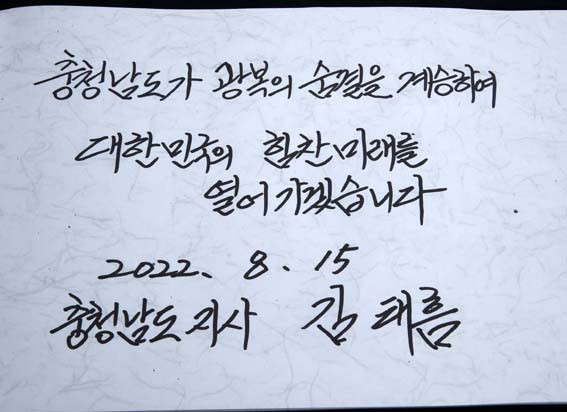 충청남도가 광복의 숨결을 계승하여
대한민국의 힘찬 미래를
열어 가겠습니다
2022. 8. 15
충청남도지사 김태흠